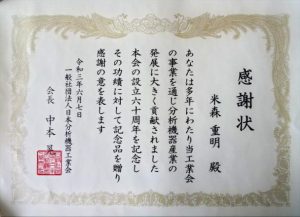 感謝状
米森 重明 殿
あなたは多年にわたり当工業会
の事業を通じ分析機器産業の
発展に大きく貢献されました
本会の設立六十周年を記念し
その功績に対して記念品を贈り
感謝の意を表します
令和三年六月七日
一般社団法人日本分析機器工業会
会長 中本 晃